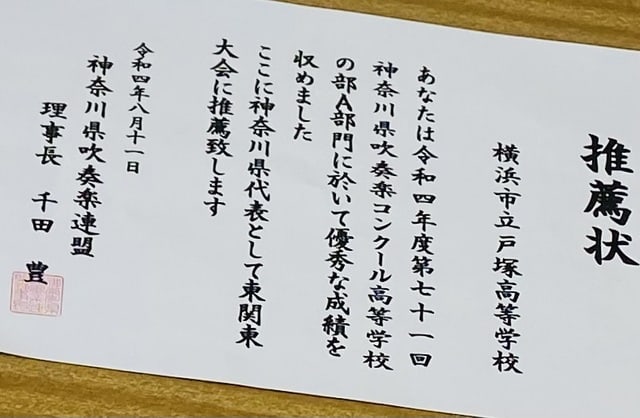 推薦状
横浜市立戸塚高等学校
あなたは令和四年度第七十一回
神奈川県吹奏楽コンクール高等学校
の部A部門に於いて優秀な成績を
収めました
ここに神奈川県代表として東関東
大会に推薦致します
令和四年八月十一日
神奈川県吹奏楽連盟
理事長 千田 豊